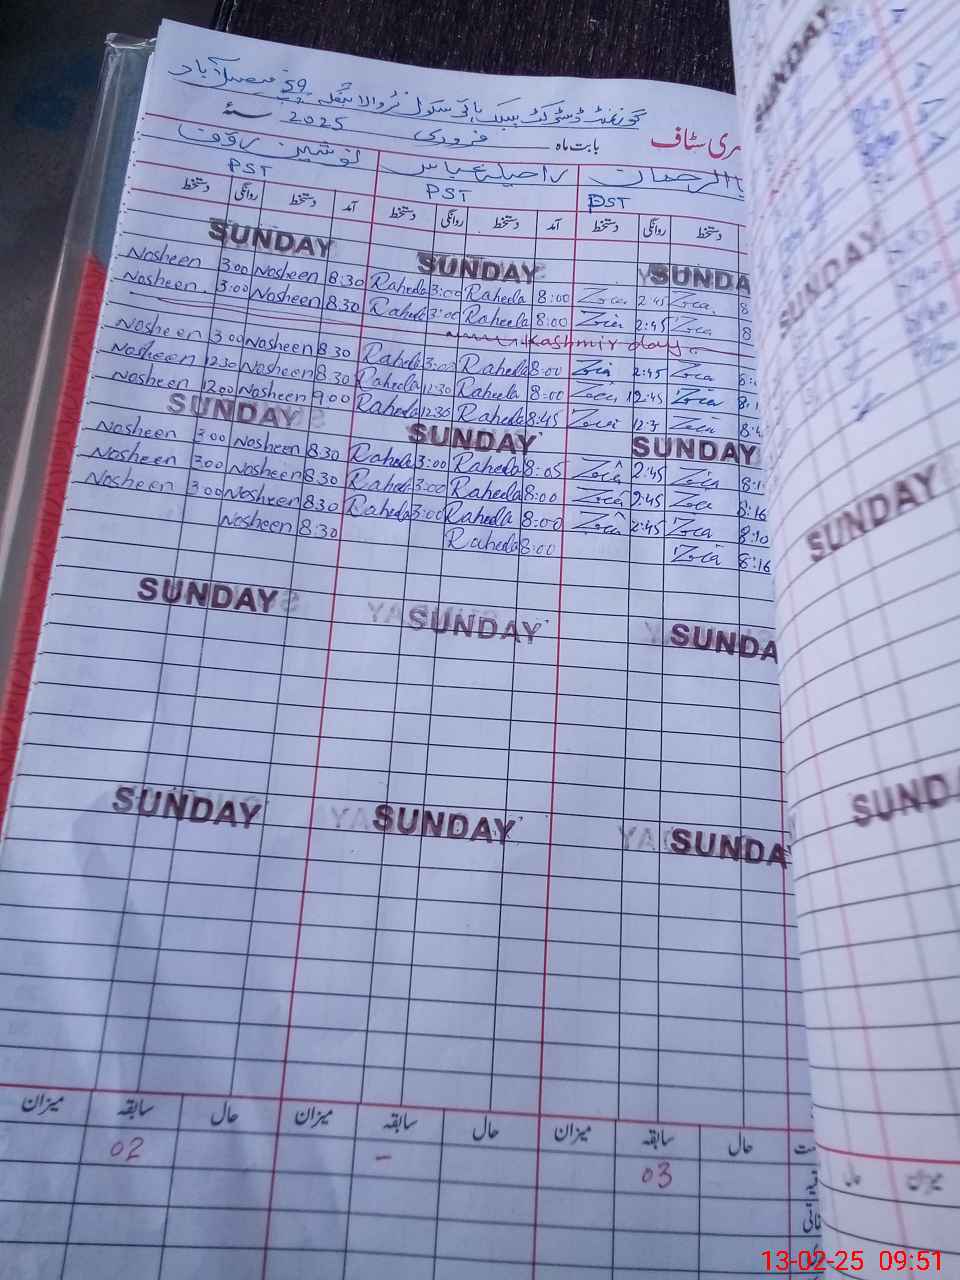 گورنمنٹ ڈسٹرکٹ پبلک ہائی سکول نڑوالا بنگلہ 59 ج ب فیصل آباد
ری سٹاف بابت ماہ فروری 2025 سنۂ
الرحمان راحیلہ عباس نوشین رؤف
PST PST PST
دستخط روانگی دستخط آمد دستخط روانگی دستخط آمد دستخط روانگی دستخط
SUNDAY SUNDAY SUNDA
Nosheen 3:00 Nosheen 8:30 Raheela 3:00 Raheela 8:00 Zoia 2:45 Zoia 8
Nosheen 3:00 Nosheen 8:30 Raheela 3:00 Raheela 8:00 Zoia 2:45 Zoia 8
Kashmir day
Nosheen 3:00 Nosheen 8:30 Raheela 3:00 Raheela 8:00 Zoia 2:45 Zoia
Nosheen 12:30 Nosheen 8:30 Raheela 12:30 Raheela 8:00 Zoia 12:45 Zoia 8:1
Nosheen 12:00 Nosheen 9:00 Raheela 12:30 Raheela 8:45 Zoia 12:3 Zoia 8:4
SUNDAY SUNDAY SUNDAY
Nosheen 3:00 Nosheen 8:30 Raheela 3:00 Raheela 8:05 Zoia 2:45 Zoia 8:1
Nosheen 3:00 Nosheen 8:30 Raheela 3:00 Raheela 8:00 Zoia 2:45 Zoia 8:16
Nosheen 3:00 Nosheen 8:30 Raheela 3:00 Raheela 8:00 Zoia 2:45 Zoia 8:10
Nosheen 8:30 Raheela 8:00 Zoia 8:16
SUNDAY SUNDAY SUNDA
SUNDAY SUNDAY SUNDA
حال سابقہ میزان حال سابقہ میزان حال سابقہ میزان
03 - 02
SUNDAY
SUNDAY
SUNDAY
SUNDA
13-02-25 09:51